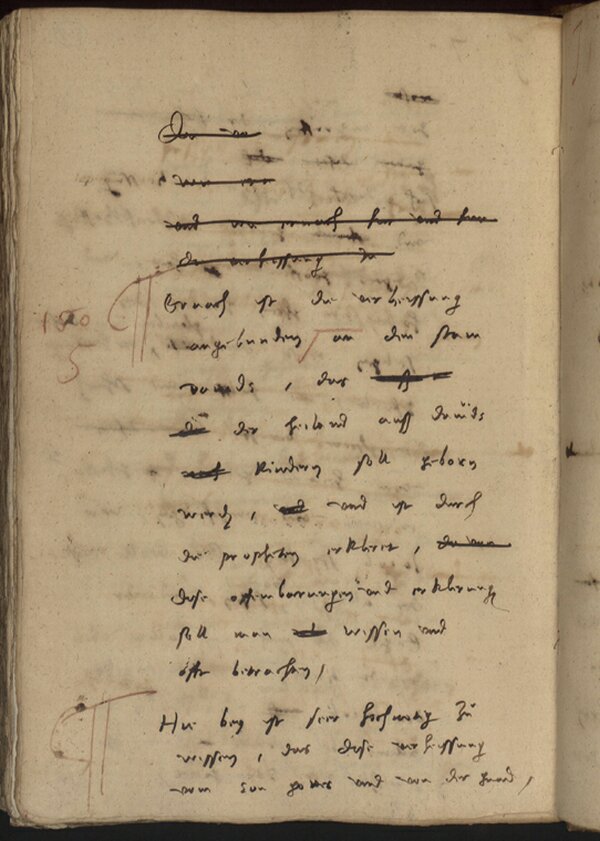 und von
die verheissung
Gnach ist die verheissung
150
angebunden an den stam
5
Davids, das
der heiland auß Davids
kindern soll geborn
werden, und ist durch
die propheten erkleret,
dise offenbarungen und erklerung
soll man wissen und
offt betrachten,
Hie bey ist seer hochnotig zu
wissen, das dise verheissung
vom son gottes und von der gnad,